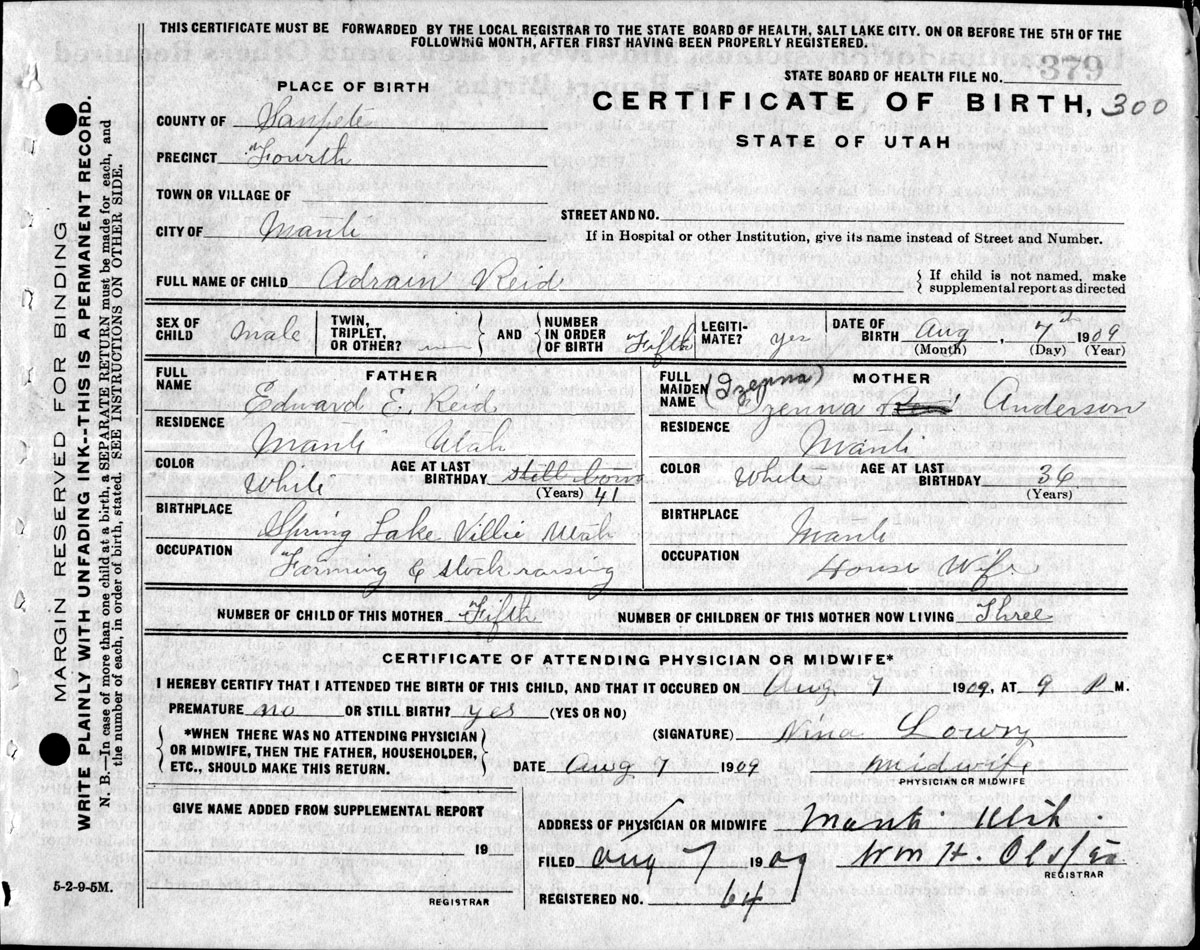 THIS CERTIFICATE MUST BE FORWARDED BY THE LOCAL REGISTRAR TO THE STATE BOARD OF HEALTH, SALT LAKE CITY. ON OR BEFORE THE 5TH OF THE
FOLLOWING MONTH, AFTER FIRST HAVING BEEN PROPERLY REGISTERED.
STATE BOARD OF HEALTH FILE NO. 379
PLACE OF BIRTH
CERTIFICATE OF BIRTH, 300
STATE OF UTAH
COUNTY OF Sanpete
PRECINCT Fourth
TOWN OR VILLAGE OF
STREET AND NO.
CITY OF Manti
If in Hospital or other Institution, give its name instead of Street and Number.
FULL NAME OF CHILD Adrain Reid
If child is not named, make
supplemental report as directed
SEX OF CHILD male TWIN, TRIPLET, OR OTHER? AND NUMBER IN ORDER OF BIRTH Fifth LEGITIMATE? yes DATE OF BIRTH Aug, 7th 1909
(Month) (Day) (Year)
FATHER
FULL NAME Edward E. Reid
RESIDENCE Manti Utah
COLOR White AGE AT LAST BIRTHDAY still born
(Years) 41
BIRTHPLACE Spring Lake Villie Utah
OCCUPATION Farming & stock raising
MOTHER
FULL MAIDEN NAME (Izenna) Izenna Reid Anderson
RESIDENCE Manti
COLOR White AGE AT LAST BIRTHDAY 36
(Years)
BIRTHPLACE Manti
OCCUPATION House Wife
NUMBER OF CHILD OF THIS MOTHER Fifth NUMBER OF CHILDREN OF THIS MOTHER NOW LIVING Three
CERTIFICATE OF ATTENDING PHYSICIAN OR MIDWIFE*
I HEREBY CERTIFY THAT I ATTENDED THE BIRTH OF THIS CHILD, AND THAT IT OCCURED ON Aug 7 1909, AT 9 P M.
PREMATURE no OR STILL BIRTH? yes (YES OR NO)
*WHEN THERE WAS NO ATTENDING PHYSICIAN
OR MIDWIFE, THEN THE FATHER, HOUSEHOLDER,
ETC., SHOULD MAKE THIS RETURN.
(SIGNATURE) Nina Lowry
DATE Aug 7 1909 Midwife
PHYSICIAN OR MIDWIFE
GIVE NAME ADDED FROM SUPPLEMENTAL REPORT
19
REGISTRAR
ADDRESS OF PHYSICIAN OR MIDWIFE Manti Utah.
FILED Aug 7 1909 Wm H.
REGISTRAR
REGISTERED NO. 64
5-2-9-5M.
MARGIN RESERVED FOR BINDING
WRITE PLAINLY WITH UNFADING INK--THIS IS A PERMANENT RECORD.
N. B.—In case of more than one child at a birth, a SEPARATE RETURN must be made for each, and
the number of each, in order of birth, stated. SEE INSTRUCTIONS ON OTHER SIDE.